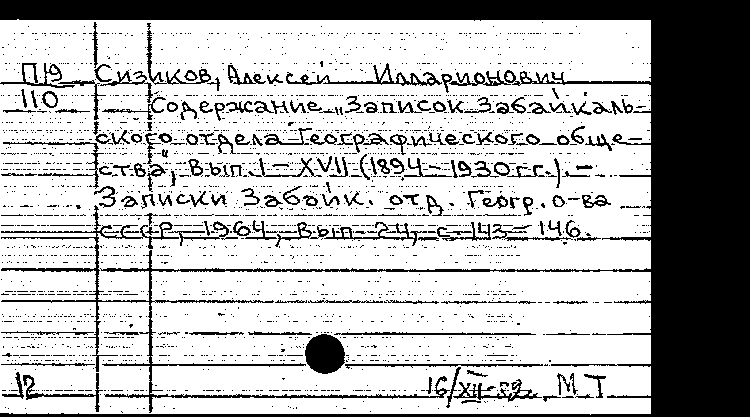 П19 Сизиков, Алексей Илларионович
110 Содержание „Записок Забайкаль-
ского отдела Географического обще-
ства", Вып. I – XVII (1894 – 1930 г.г.). –
Записки Забайк. отд. Геогр. о-ва
СССР, 1964, вып. 24, с. 143 – 146.
12 16/XII- М Т